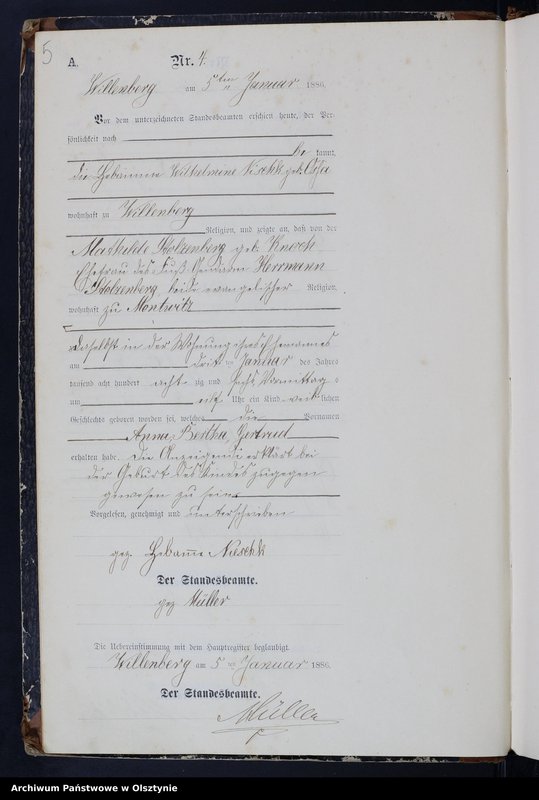 5
A. Nr. 4.
Willenberg am 5ten Januar 1886.
Vor dem unterzeichneten Standesbeamten erschien heute, der Per-
sönlichkeit nach
be kannt,
die Hebamme Wilhelmine geb.
wohnhaft zu Willenberg
Religion, und zeigte an, daß von der
Mathilde Stolzenberg geb. Knoch
Ehefrau des Fuß Gendarm Herrmann
Stolzenberg beide evangelischer Religion,
wohnhaft zu Montwitz
daselbst in der Wohnung ihres Ehemannes
am dritten Januar des Jahres
tausend acht hundert acht zig und sechs Vormittag s
um elf Uhr ein Kind weib lichen
Geschlechts geboren worden sei, welches die Vornamen
Anna, Bertha, Gertrud
erhalten habe. Die Anzeigende erklärt bei
der Geburt des Kindes zugegen
gewesen zu sein.
Vorgelesen, genehmigt und unterschrieben
gez. Hebamme
Der Standesbeamte.
gez Müller
Die Uebereinstimmung mit dem Hauptregister beglaubigt.
Willenberg am 5 ten Januar 1886.
Der Standesbeamte.
Müller
Archiwum Państwowe w Olsztynie